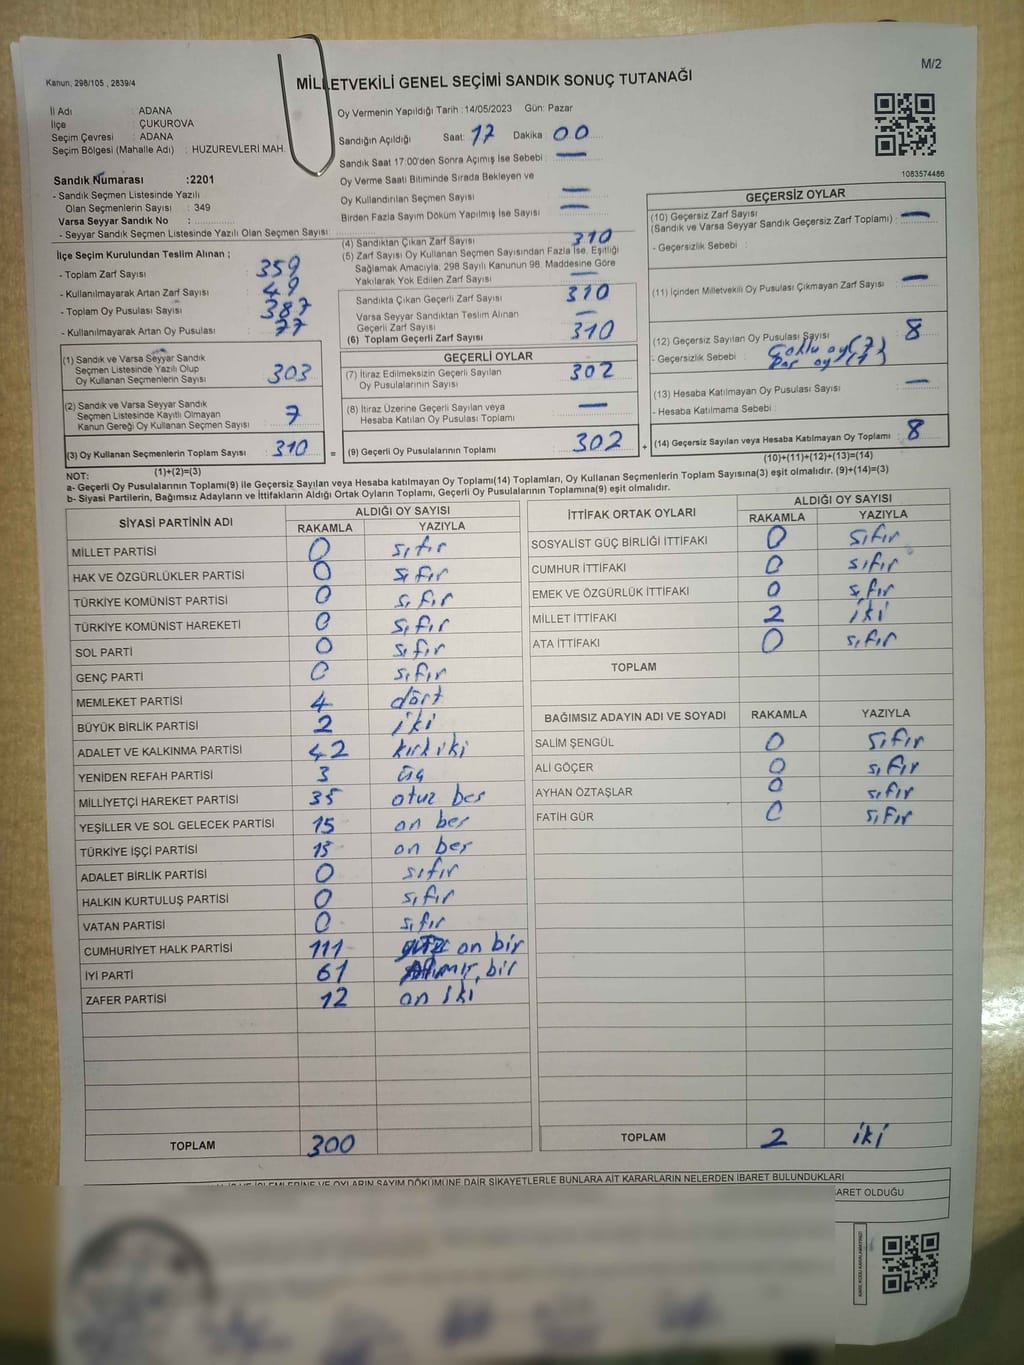 Kanun, 298/105 , 2839/4
M/2
MİLLETVEKİLİ GENEL SEÇİMİ SANDIK SONUÇ TUTANAĞI
İl Adı : ADANA
İlçe : ÇUKUROVA
Seçim Çevresi : ADANA
Seçim Bölgesi (Mahalle Adı) : HUZUREVLERİ MAH.
Oy Vermenin Yapıldığı Tarih :14/05/2023 Gün: Pazar
Sandığın Açıldığı Saat: 17 Dakika 00
Sandık Saat 17:00'den Sonra Açımış İse Sebebi : —
Oy Verme Saati Bitiminde Sırada Bekleyen ve
Oy Kullandırılan Seçmen Sayısı —
Birden Fazla Sayım Döküm Yapılmış İse Sayısı —
1083574486
Sandık Numarası :2201
- Sandık Seçmen Listesinde Yazılı
Olan Seçmenlerin Sayısı : 349
Varsa Seyyar Sandık No :
- Seyyar Sandık Seçmen Listesinde Yazılı Olan Seçmen Sayısı :
İlçe Seçim Kurulundan Teslim Alınan ;
- Toplam Zarf Sayısı 359
- Kullanılmayarak Artan Zarf Sayısı 49
- Toplam Oy Pusulası Sayısı 387
- Kullanılmayarak Artan Oy Pusulası 77
(1) Sandık ve Varsa Seyyar Sandık
Seçmen Listesinde Yazılı Olup
Oy Kullanan Seçmenlerin Sayısı 303
(2) Sandık ve Varsa Seyyar Sandık
Seçmen Listesinde Kayıtlı Olmayan
Kanun Gereği Oy Kullanan Seçmen Sayısı 7
(3) Oy Kullanan Seçmenlerin Toplam Sayısı 310 =
(4) Sandıktan Çıkan Zarf Sayısı 310
(5) Zarf Sayısı Oy Kullanan Seçmen Sayısından Fazla İse, Eşitliği
Sağlamak Amacıyla, 298 Sayılı Kanunun 98. Maddesine Göre
Yakılarak Yok Edilen Zarf Sayısı —
Sandıkta Çıkan Geçerli Zarf Sayısı 310
Varsa Seyyar Sandıktan Teslim Alınan
Geçerli Zarf Sayısı —
(6) Toplam Geçerli Zarf Sayısı 310
GEÇERLİ OYLAR
(7) İtiraz Edilmeksizin Geçerli Sayılan
Oy Pusulalarının Sayısı 302
(8) İtiraz Üzerine Geçerli Sayılan veya
Hesaba Katılan Oy Pusulası Toplamı —
(9) Geçerli Oy Pusulalarının Toplamı 302 +
GEÇERSİZ OYLAR
(10) Geçersiz Zarf Sayısı
(Sandık ve Varsa Seyyar Sandık Geçersiz Zarf Toplamı) : —
- Geçersizlik Sebebi :
(11) İçinden Milletvekili Oy Pusulası Çıkmayan Zarf Sayısı —
(12) Geçersiz Sayılan Oy Pusulası Sayısı 8
- Geçersizlik Sebebi : Çoklu oy(7)
oy (1)
(13) Hesaba Katılmayan Oy Pusulası Sayısı —
- Hesaba Katılmama Sebebi :
(14) Geçersiz Sayılan veya Hesaba Katılmayan Oy Toplamı : 8
(1)+(2)=(3)
(10)+(11)+(12)+(13)=(14)
NOT:
a- Geçerli Oy Pusulalarının Toplamı(9) ile Geçersiz Sayılan veya Hesaba katılmayan Oy Toplamı(14) Toplamları, Oy Kullanan Seçmenlerin Toplam Sayısına(3) eşit olmalıdır. (9)+(14)=(3)
b- Siyasi Partilerin, Bağımsız Adayların ve İttifakların Aldığı Ortak Oyların Toplamı, Geçerli Oy Pusulalarının Toplamına(9) eşit olmalıdır.
SİYASİ PARTİNİN ADI ALDIĞI OY SAYISI
RAKAMLA YAZIYLA
MİLLET PARTİSİ 0 sıfır
HAK VE ÖZGÜRLÜKLER PARTİSİ 0 sıfır
TÜRKİYE KOMÜNİST PARTİSİ 0 sıfır
TÜRKİYE KOMÜNİST HAREKETİ 0 sıfır
SOL PARTİ 0 sıfır
GENÇ PARTİ 0 sıfır
MEMLEKET PARTİSİ 4 dört
BÜYÜK BİRLİK PARTİSİ 2 iki
ADALET VE KALKINMA PARTİSİ 42 kırk iki
YENİDEN REFAH PARTİSİ 3 üç
MİLLİYETÇİ HAREKET PARTİSİ 35 otuz beş
YEŞİLLER VE SOL GELECEK PARTİSİ 15 on beş
TÜRKİYE İŞÇİ PARTİSİ 15 on beş
ADALET BİRLİK PARTİSİ 0 sıfır
HALKIN KURTULUŞ PARTİSİ 0 sıfır
VATAN PARTİSİ 0 sıfır
CUMHURİYET HALK PARTİSİ 111 yüz on bir
İYİ PARTİ 61 Altmış bir
ZAFER PARTİSİ 12 on iki
TOPLAM 300
İTTİFAK ORTAK OYLARI ALDIĞI OY SAYISI
RAKAMLA YAZIYLA
SOSYALİST GÜÇ BİRLİĞİ İTTİFAKI 0 sıfır
CUMHUR İTTİFAKI 0 sıfır
EMEK VE ÖZGÜRLÜK İTTİFAKI 0 sıfır
MİLLET İTTİFAKI 2 iki
ATA İTTİFAKI 0 sıfır
TOPLAM
BAĞIMSIZ ADAYIN ADI VE SOYADI RAKAMLA YAZIYLA
SALİM ŞENGÜL 0 sıfır
ALİ GÖÇER 0 sıfır
AYHAN ÖZTAŞLAR 0 sıfır
FATİH GÜR 0 sıfır
TOPLAM 2 iki
İŞLEMLERİNE VE OYLARIN SAYIM DÖKÜMÜNE DAİR ŞİKAYETLERLE BUNLARA AİT KARARLARIN NELERDEN İBARET BULUNDUKLARI
BARET OLDUĞU